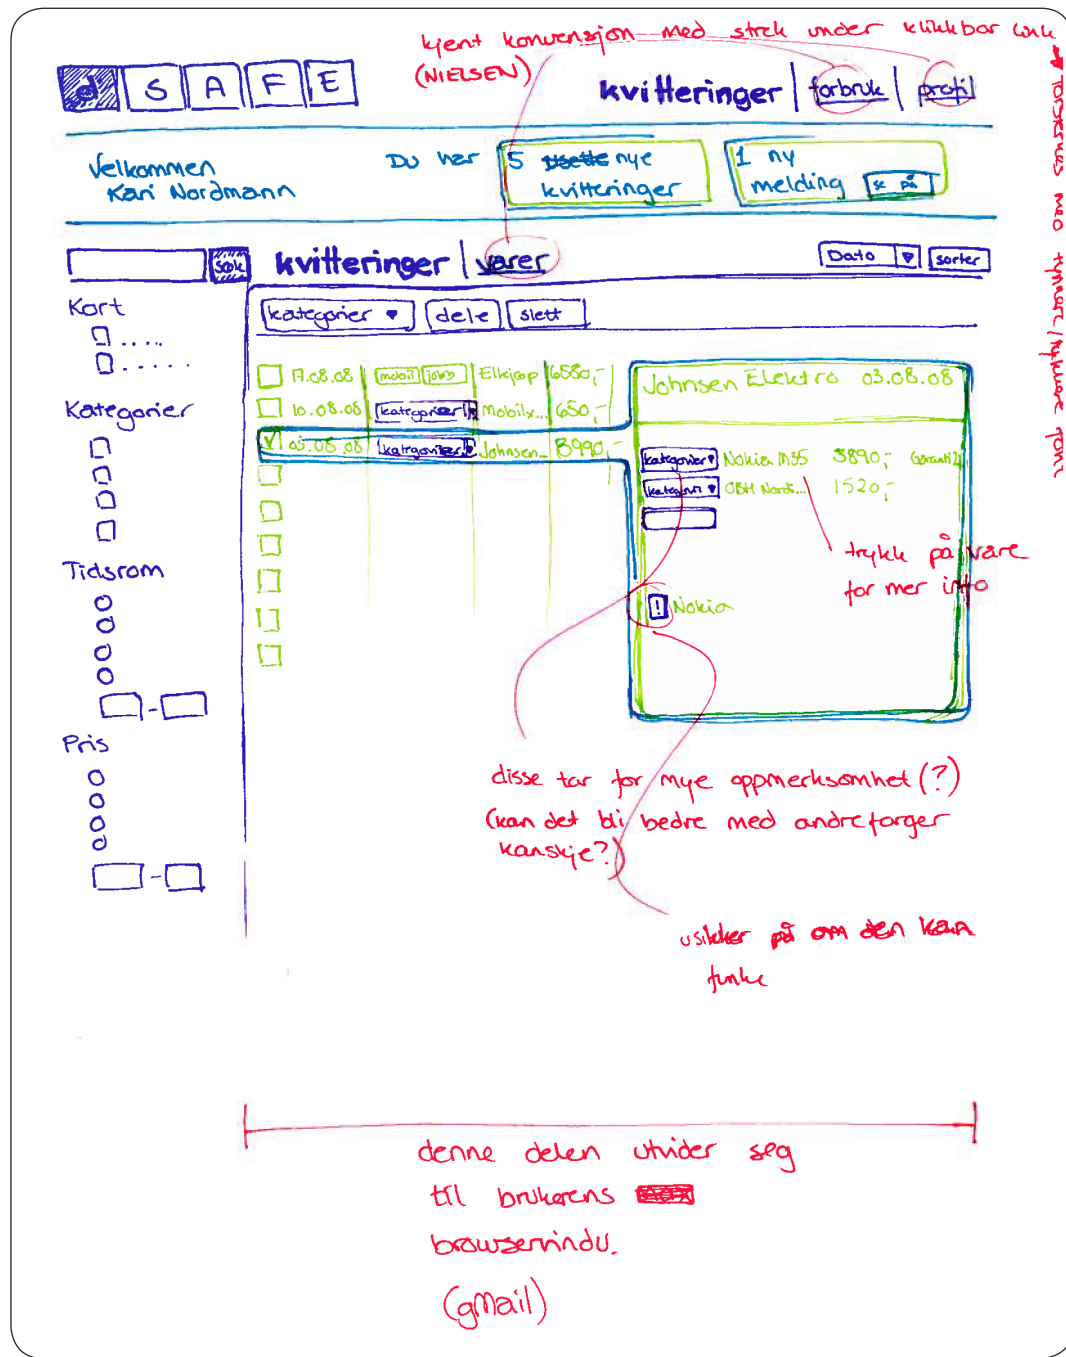 kjent konvensjon med strek under klikkbar link
(NIELSEN)
d S A F E
kvitteringer | forbruk | profil
Velkommen
Kari Nordmann
Du har
5 nye
kvitteringer
1 ny
melding
se på
søk
kvitteringer | varer
Dato
sorter
Kort
kategorier
dele
slett
17.08.08 mobil jobb Elkjøp 6580,-
10.08.08 kategorier Mobilx... 650,-
03.08.08 kategorier Johnsen... 8990,-
Johnsen Elektro 03.08.08
kategorier Nokia M35 3890,-
kategori OBH Nordi... 1520,-
! Nokia
Kategorier
Tidsrom
-
Pris
-
trykk på vare
for mer info
disse tar for mye oppmerksomhet (?)
(kan det bli bedre med andre farger
kanskje?)
usikker på om den kan
funke
denne delen utvider seg
til brukerens
browservindu.
(gmail)
med tynnere / tykkere